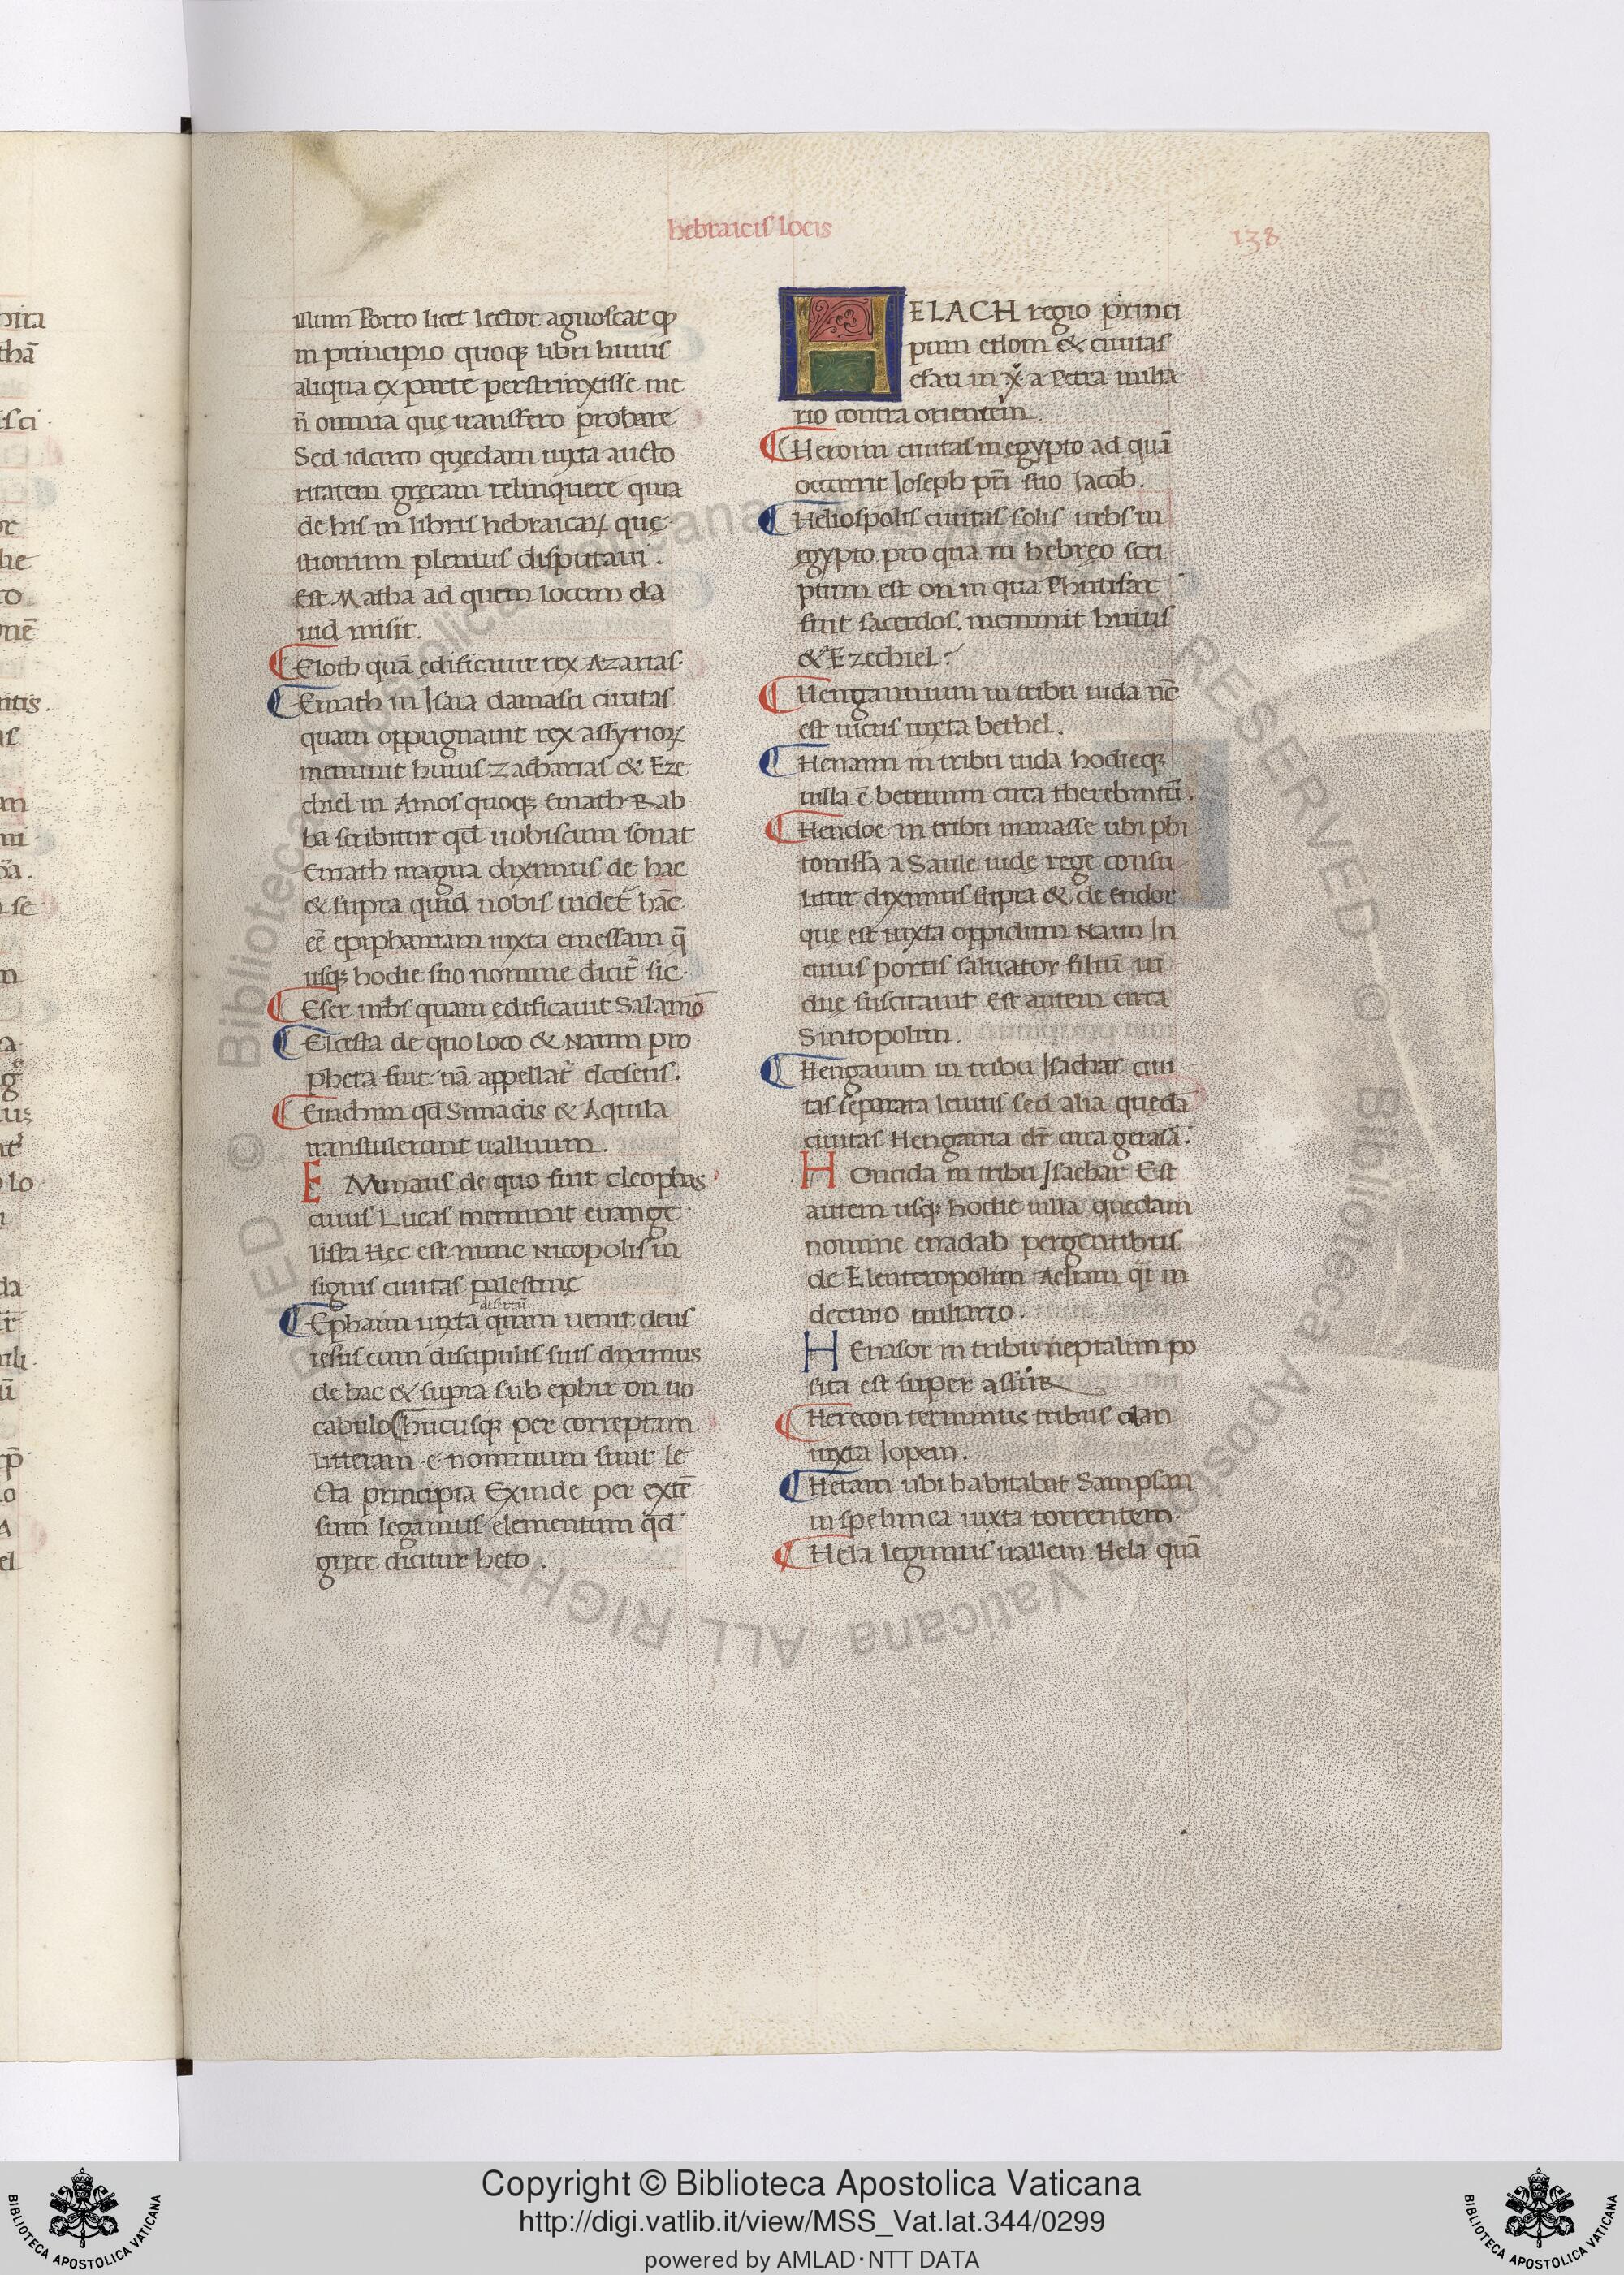 hebraicis locis
138
illum Porro licet lector agnoscat qp
in principio quoqꝫ libri huius
aliqua ex parte perstrinxisse me
n̄ omnia quę transfero probare
Sed idcirco quędam iuxta aucto
ritatem gręcam relinquere quia
de his in libris hebraicaꝝ quę
stionum plenius disputaui.
Est Matha ad quem locum da
uid misit.
Eloth quā edificauit rex Azarias.
Emath in Isaia damasci ciuitas
quam oppugnauit rex assyrioꝝ
meminit huius Zacharias & Eze
chiel in Amos quoqꝫ Emath Rab
ba scribitur qd uobiscum sonat
Emath magna diximus de hac
& supra quid nobis uidet̄ hāc
eē epiphaniam iuxta emessam q̄
usqꝫ hodie suo nomine dicit̄ sic.
Eser urbs quam edificauit Salamō
Elcesta de quo loco & Naum pro
pheta fuit nā appellat̄ elceseus.
Enachim qd Simachis & Aquila
transtulerunt uallium.
EMmaus de quo fuit Cleophas
cuius Lucas meminit euange
lista Hec est nunc Nicopolis in
signis ciuitas palestinę
desertū
Ephaim iuxta quam uenit deus
iesus cum discipulis suis diximus
de hac & supra sub ephir on uo
cabulo hucusqꝫ per correptam
litteram e nominum sunt le
cta principia Exinde per extē
sum legamus elementum qd
gręce dicitur heto.
HELACH regio princi
pum edom & ciuitas
esau in x̄ a Petra milia
rio contra orientem.
Heroim ciuitas in egypto ad quā
occurrit Joseph pr̄i suo Jacob.
Heliospolis ciuitas solis urbs in
egypto pro qua in hebręo scri
ptum est on in qua Phutifar
fuit sacerdos. meminit huius
& Ezechiel.
Hengannium in tribu iuda nc̄
est uicus iuxta bethel.
Henaim in tribu iuda hodieqꝫ
uilla ē betrumn circa therebintū.
Hendoe in tribu manasse ubi phi
tonissa a Saule iudę rege consu
litur diximus supra & de endor
quę est iuxta oppidum Naun In
cuius portis saluator filiū ui
duę suscitauit Est autem circa
Sintopolim.
Hengauim in tribu Isachar ciui
tas separata leuitis sed alia quędā
ciuitas Hengauia dr̄ circa gerasā.
HOncida in tribu Isachar Est
autem usqꝫ hodie uilla quedam
nomine enadab pergentibus
de Eleuteropolim Aeliam qi in
decimo miliario.
HEnasor in tribu neptalim po
sita est super
Herecon terminus tribus olan
iuxta Jopem.
Hetam ubi habitabat Sampsan
in spelunca iuxta torrentem.
Hela legimus uallem Hela quā
© Biblioteca Apostolica Vaticana ALL RIGHTS RESERVED
Copyright © Biblioteca Apostolica Vaticana
http://digi.vatlib.it/view/MSS_Vat.lat.344/0299
powered by AMLAD·NTT DATA
BIBLIOTECA APOSTOLICA VATICANA
BIBLIOTECA APOSTOLICA VATICANA